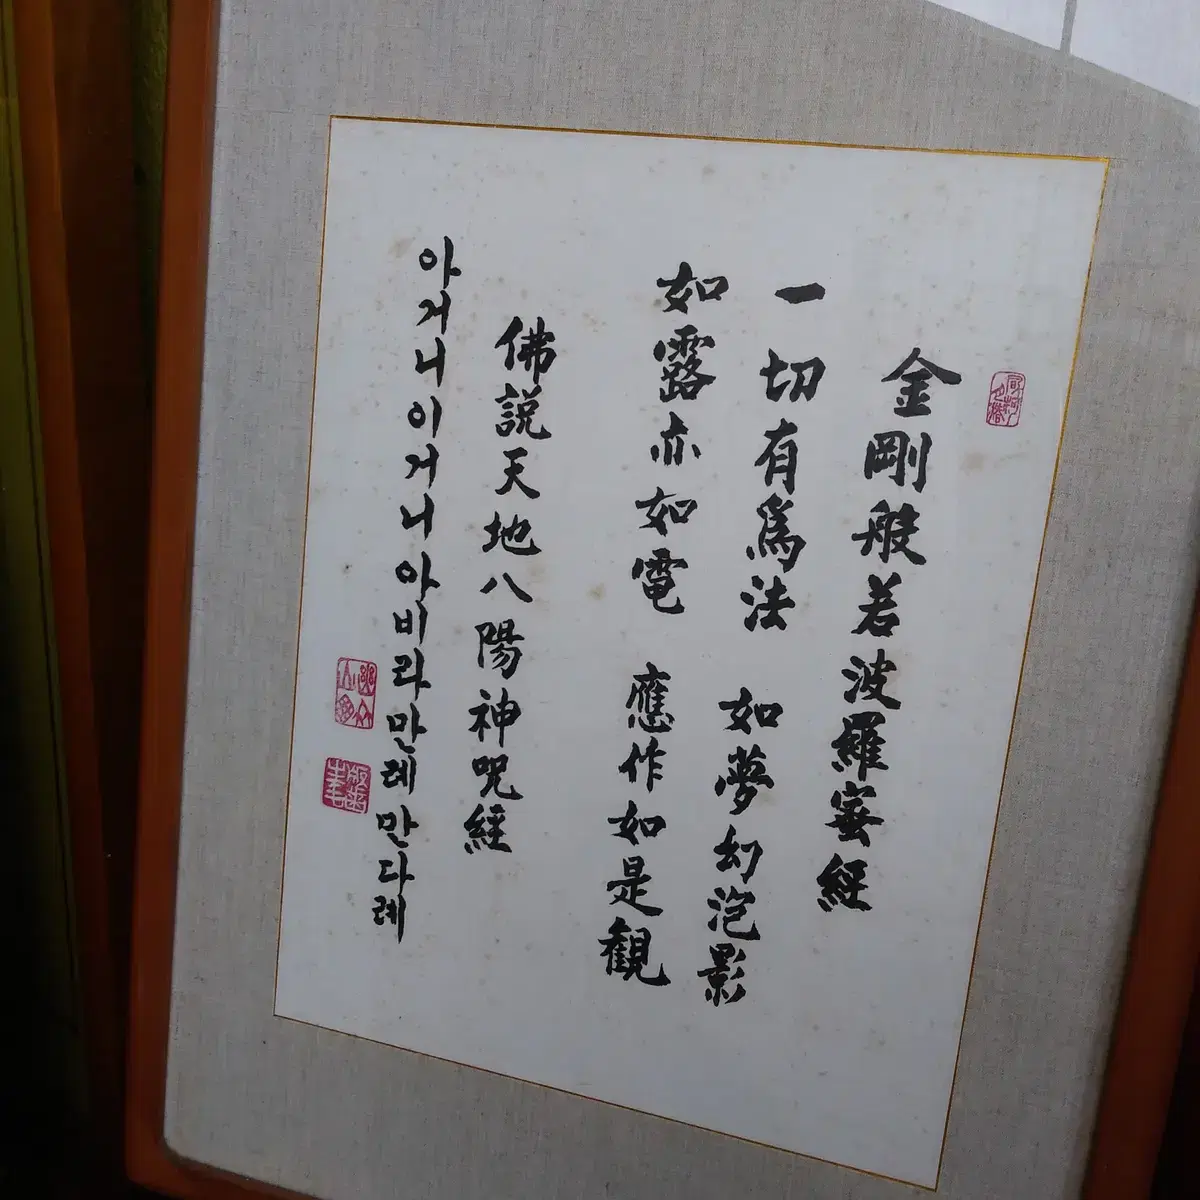 金剛般若波羅蜜經
一切有爲法 如夢幻泡影
如露亦如電 應作如是觀
佛說天地八陽神呪經
아거니이거니아비라만례만다례